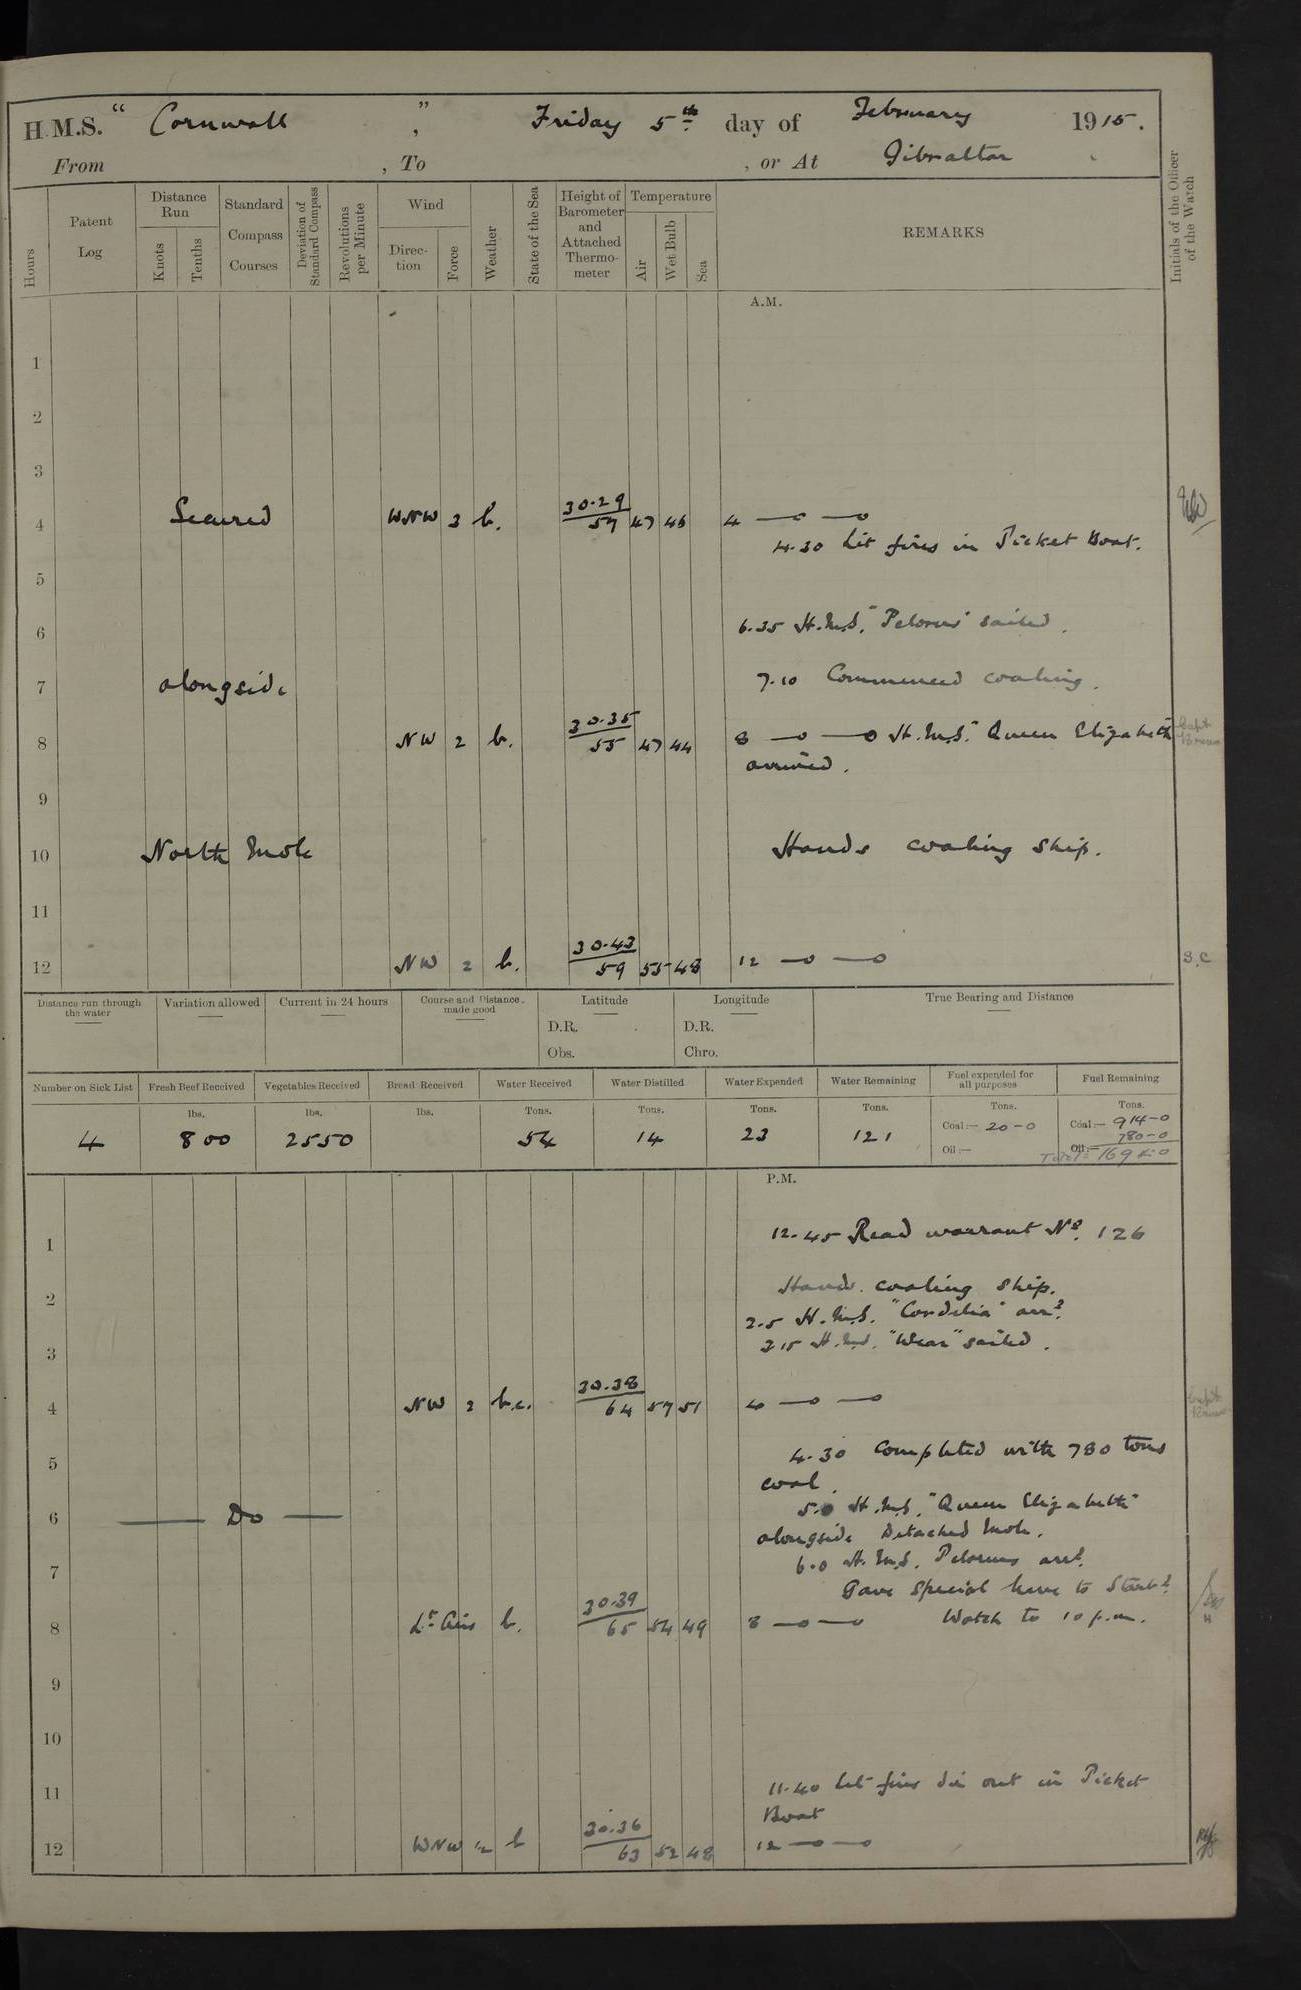 H.M.S. "Cornwall", Friday 5th day of February 1915.
From , To , or At Gibraltar
Hours
Patent Log
Distance Run
Knots
Tenths
Standard Compass Courses
Deviation of Standard Compass
Revolutions per Minute
Wind
Direction
Force
Weather
State of the Sea
Height of Barometer and Attached Thermometer
Temperature
Air
Wet Bulb
Sea
REMARKS
Initials of the Officer of the Watch
A.M.
1
2
3
4 Secured WNW 3 b. 30.29 57 47 46 4 —o —o
4.30 Lit fires in Picket Boat.
5
6 6.35 H.M.S. "Pelorus" sailed.
7 alongside 7.10 Commenced coaling.
8 NW 2 b. 30.35 55 47 44 8 —o —o H.M.S. "Queen Elizabeth"
arrived.
9
10 North Mole Hands coaling ship.
11
12 NW 2 b. 30.43 59 55 48 12 —o —o S.C
Distance run through the water
Variation allowed
Current in 24 hours
Course and Distance made good
Latitude
D.R.
Obs.
Longitude
D.R.
Chro.
True Bearing and Distance
Number on Sick List
Fresh Beef Received
Vegetables Received
Bread Received
Water Received
Water Distilled
Water Expended
Water Remaining
Fuel expended for all purposes
Fuel Remaining
lbs. lbs. lbs. Tons. Tons. Tons. Tons. Tons. Tons.
4 800 2550 54 14 23 121
Coal:— 20-0
Oil:—
Coal:— 914-0
780-0
Oil:—
Total 1694-0
P.M.
1 12.45 Read warrant No. 126
2 Hands coaling ship.
2.5 H.M.S. "Cordelia" arrd.
3 2.15 H.M.S. "Wear" sailed.
4 NW 2 b.c. 30.38 64 57 51 4 —o —o
5 4.30 Completed with 780 tons
coal.
6 — Do — 5.0 H.M.S. "Queen Elizabeth"
alongside Detached Mole.
7 6.0 H.M.S. Pelorus arrd.
Gave special leave to Starbd.
8 Lt. Airs b. 30.39 65 54 49 8 —o —o Watch to 10 p.m.
9
10
11 11.40 Let fires die out in Picket
Boat
12 WNW 1/2 b 30.36 63 52 48 12 —o —o